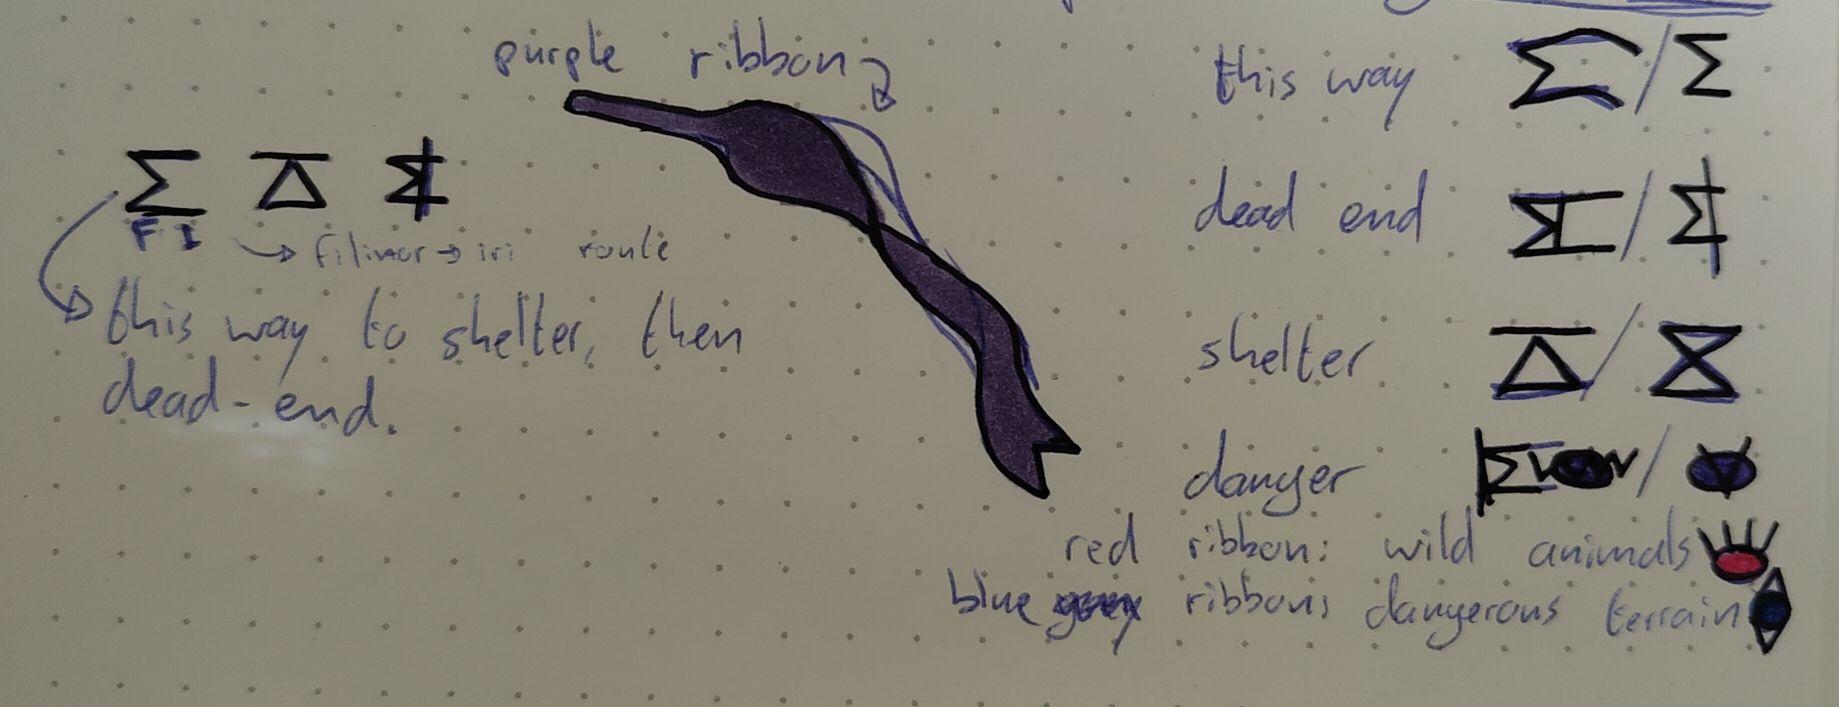 purple ribbon
this way Σ / Σ
dead end
shelter
danger
red ribbon: wild animals
blue ribbon: dangerous terrain
Σ
F I → filinor → iri route
this way to shelter, then
dead-end.